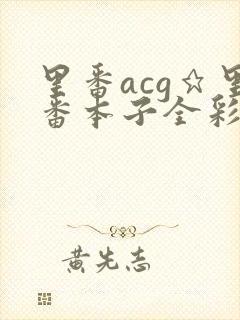 里番acg☆里
番本子全彩
黄先志